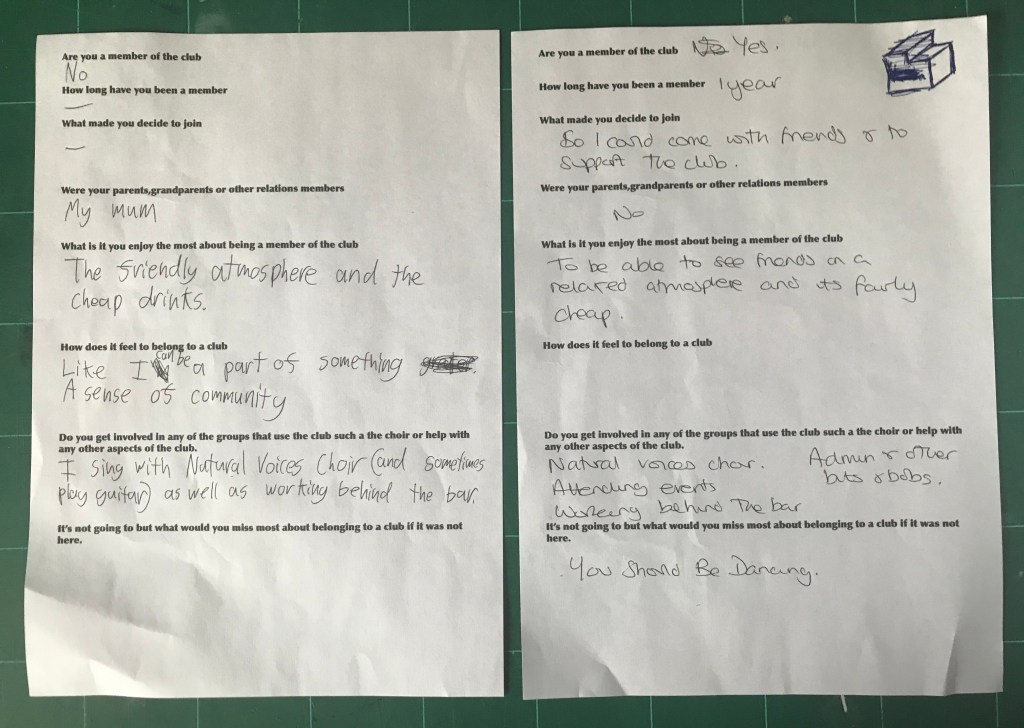 Are you a member of the club
No
How long have you been a member
—
What made you decide to join
—
Were your parents,grandparents or other relations members
My mum
What is it you enjoy the most about being a member of the club
The friendly atmosphere and the
cheap drinks.
How does it feel to belong to a club
Like I can be a part of something
A sense of community
Do you get involved in any of the groups that use the club such a the choir or help with
any other aspects of the club.
I sing with Natural Voices Choir (and sometimes
play guitar) as well as working behind the bar.
It's not going to but what would you miss most about belonging to a club if it was not
here.
Are you a member of the club No Yes.
How long have you been a member 1 year
What made you decide to join
So I could come with friends & to
support the club.
Were your parents,grandparents or other relations members
No
What is it you enjoy the most about being a member of the club
To be able to see friends in a
relaxed atmosphere and its fairly
cheap.
How does it feel to belong to a club
Do you get involved in any of the groups that use the club such a the choir or help with
any other aspects of the club.
Natural voices choir.
Attending events
Working behind The bar
Admin & other
bits & bobs.
It's not going to but what would you miss most about belonging to a club if it was not
here.
You Should Be Dancing.